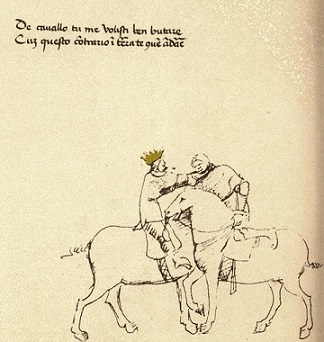 De cauallo tu me volisti ben butare
Cuz questo c̄trario ī terra te quē ādare